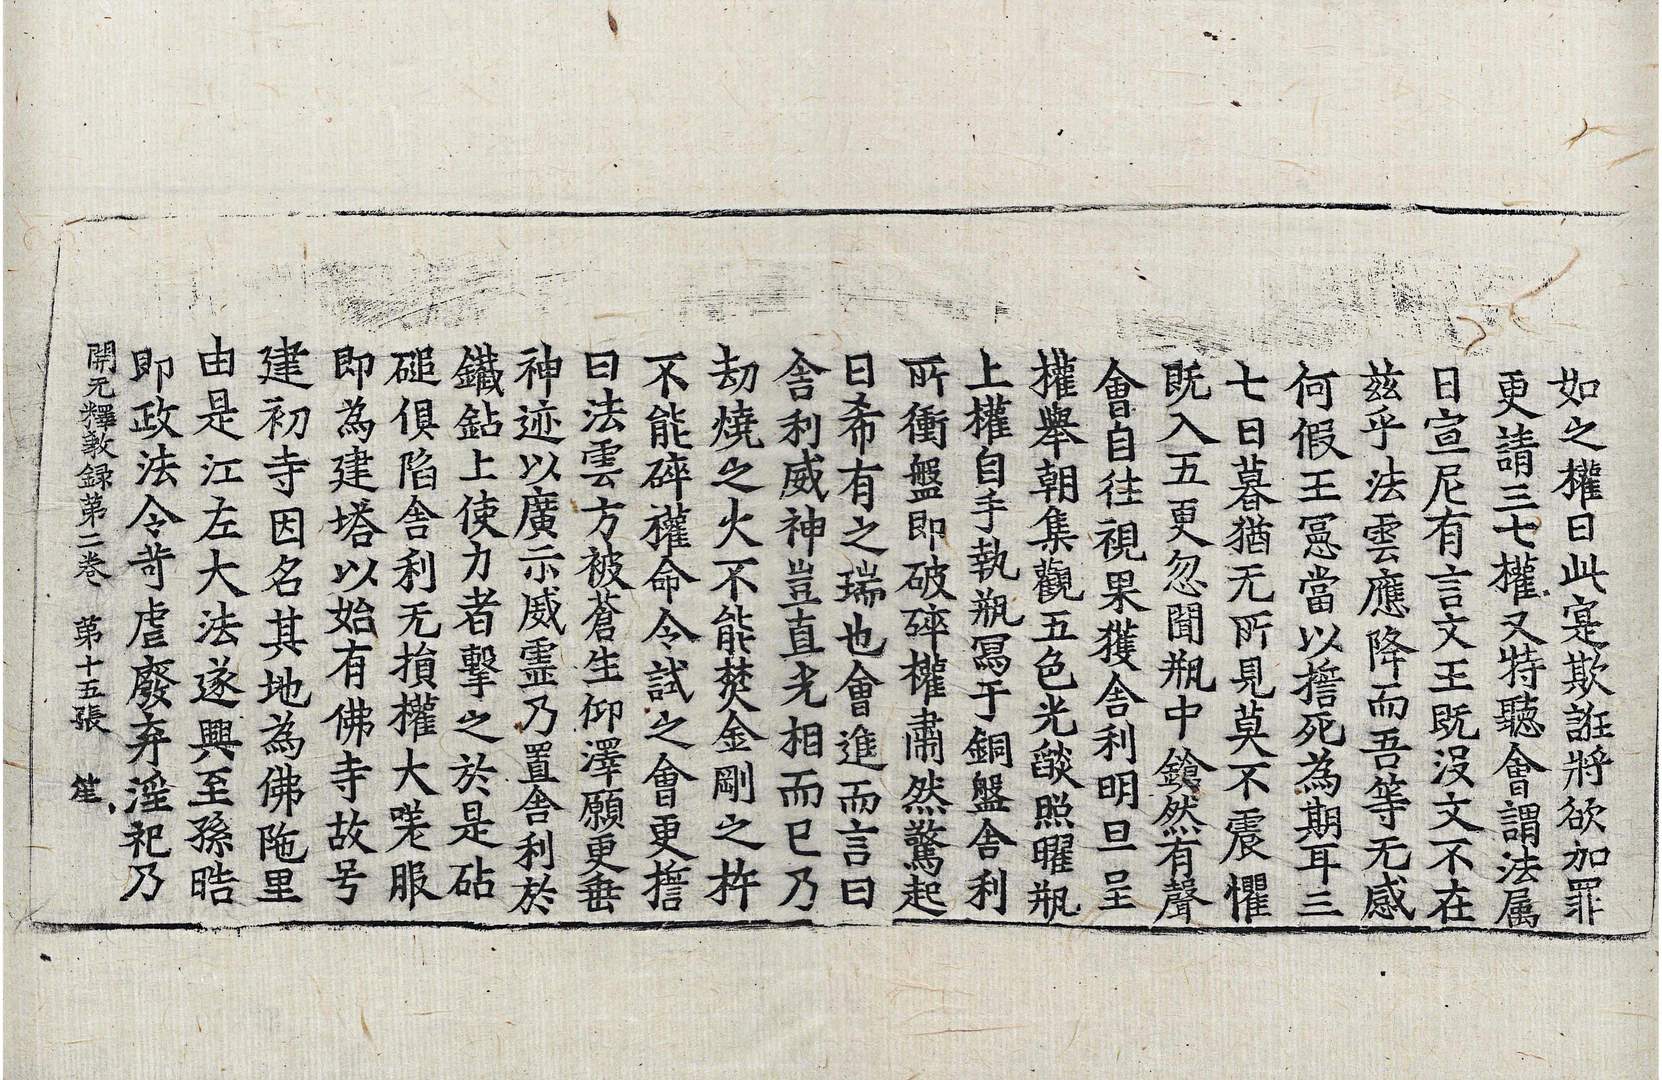 如之權曰此寔欺誑將欲加罪
更請三七權又特聽會謂法属
日宣尼有言文王既没文不在
茲乎法雲應降而吾等无感
何假王憲當以誓死為期耳三
七日暮猶无所見莫不震懼
既入五更忽聞瓶中鎗然有聲
會自往視果獲舍利明旦呈
權舉朝集觀五色光燄照曜瓶
上權自手執瓶冩于銅盤舍利
所衝盤即破碎權肅然驚起
曰希有之瑞也會進而言曰
舍利威神豈直光相而已乃
劫燒之火不能焚金剛之杵
不能碎權命令試之會更擔
曰法雲方被蒼生仰澤願更垂
神迹以廣示威靈乃置舍利於
鐵鉆上使力者擊之於是砧
磓俱陷舍利无損權大嗟服
即為建塔以始有佛寺故号
建初寺因名其地為佛陁里
由是江左大法遂興至孫晧
即政法令苛虐廢弃淫祀乃
開元釋教録第二卷 第十五張 笙